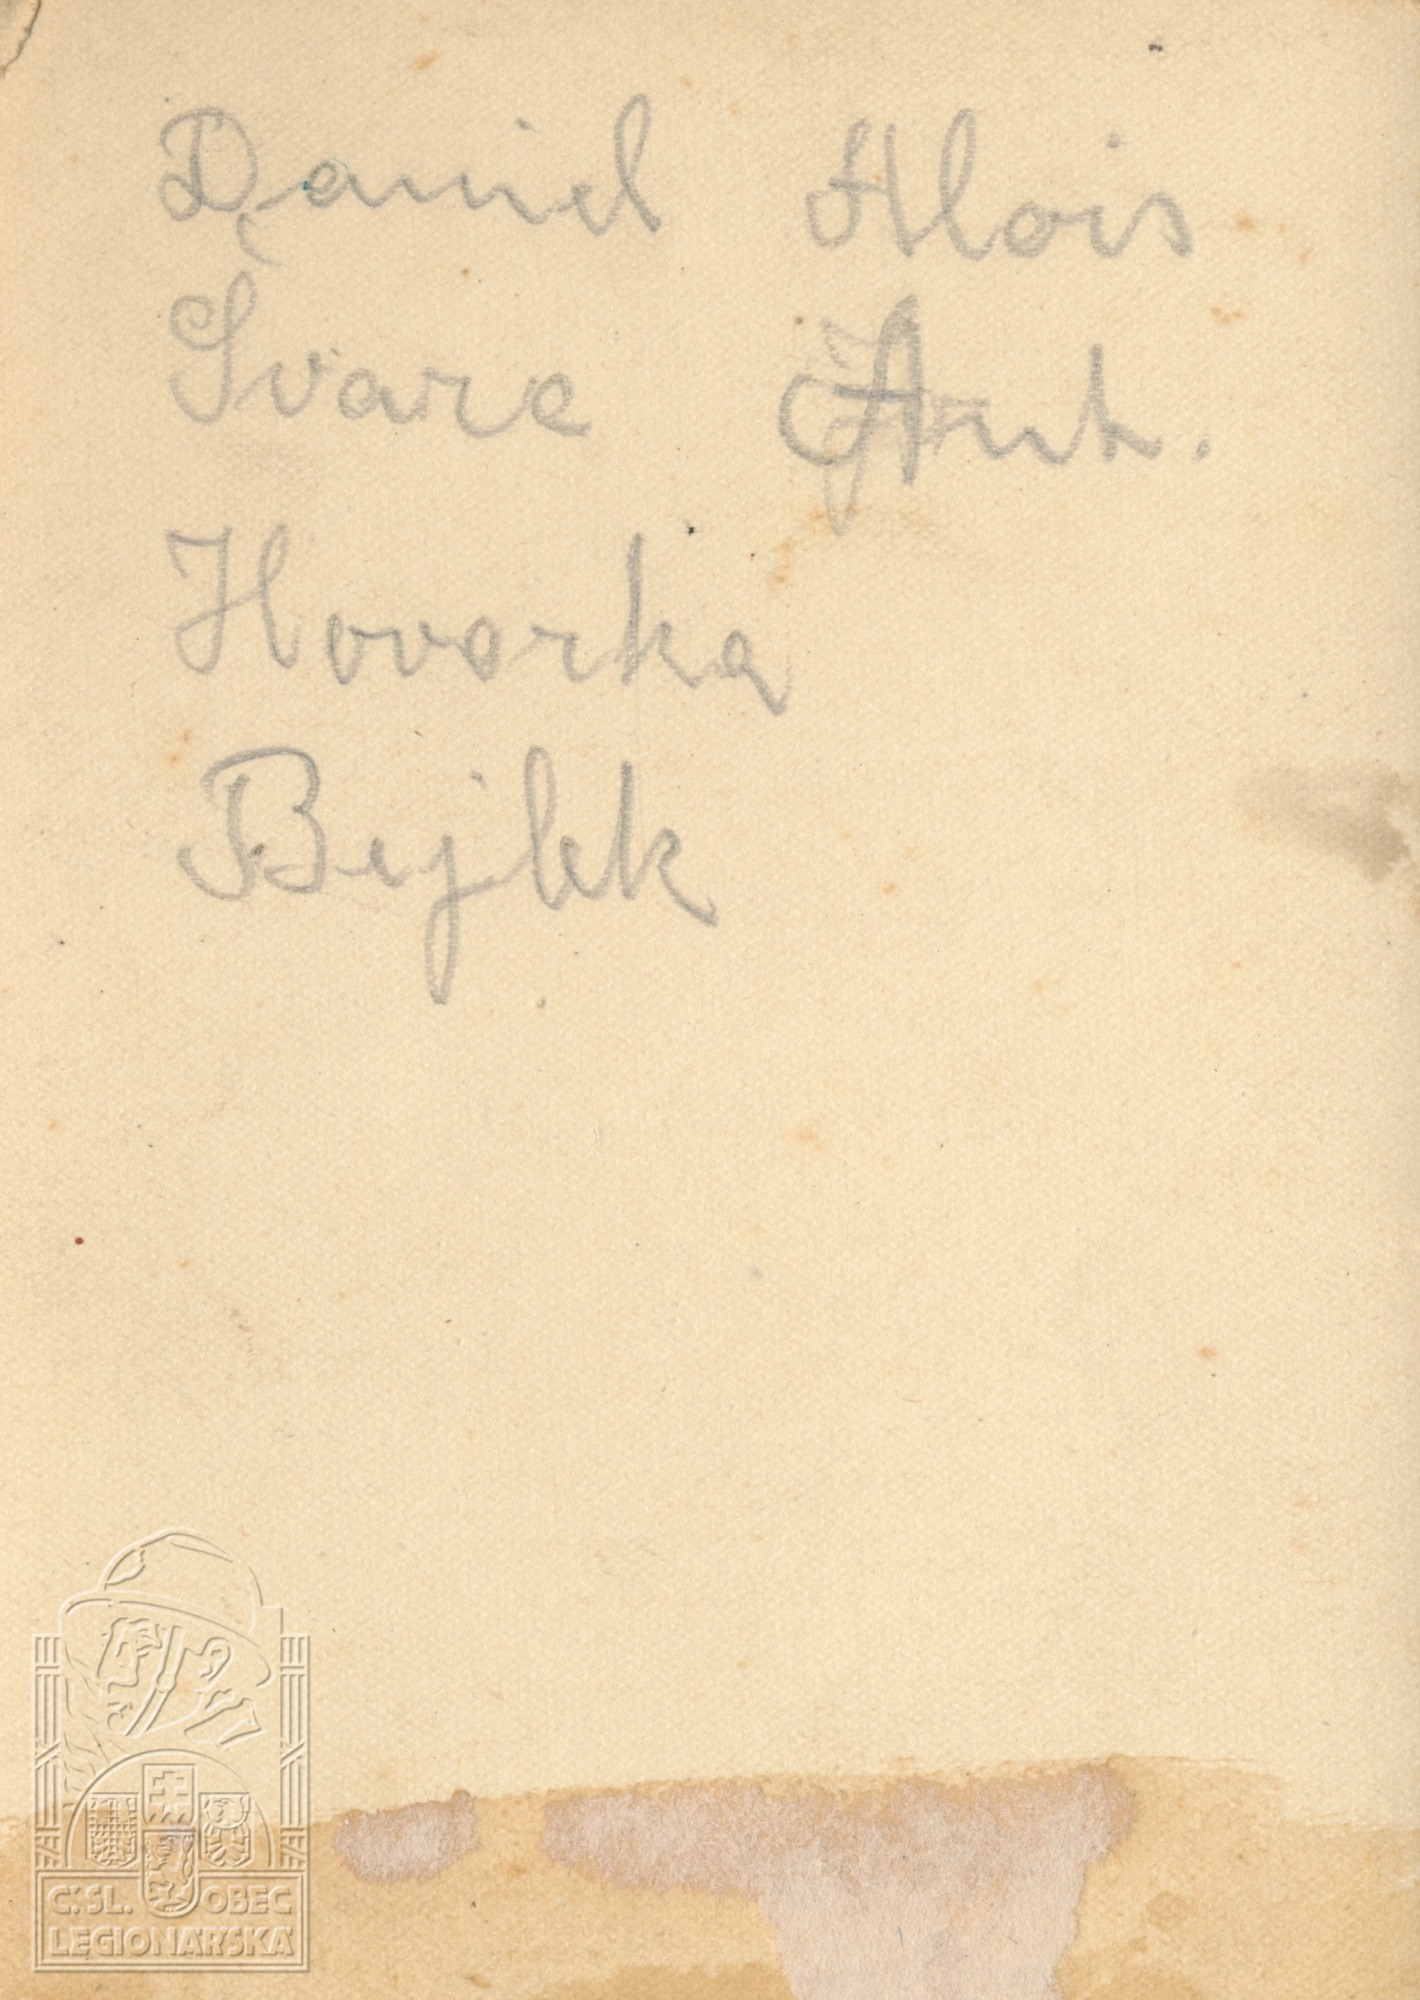 Daniel Alois
Švarc Ant.
Hovorka
Bejlek
Č.SL. OBEC
LEGIONÁŘSKÁ